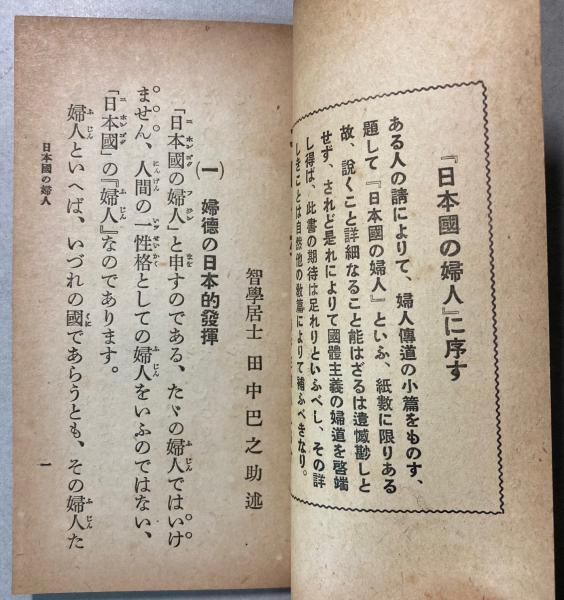 『日本國の婦人』に序す
ある人の請によりて、婦人傳道の小篇をものす、
題して『日本國の婦人』といふ、紙數に限りある
故、說くこと詳細なること能はざるは遺憾尠しと
せず、されど是れによりて國體主義の婦道を啓端
し得ば、此書の期待は足れりといふべし、その詳
しきことは自然他の敎篇によりて補ふべきなり。
智學居士 田中巴之助述
(一) 婦德の日本的發揮
「日本國の婦人」と申すのである、たゞの婦人ではいけ
ません、人間の一性格としての婦人をいふのではない、
「日本國」の『婦人』なのであります。
婦人といへば、いづれの國であらうとも、その婦人た
日本國の婦人
一